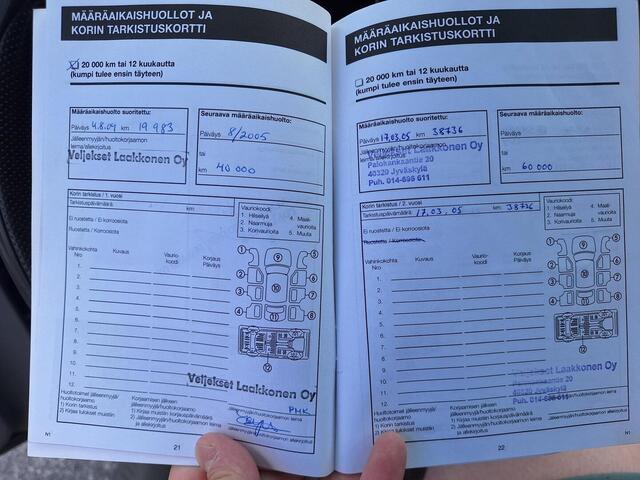 MÄÄRÄAIKAISHUOLLOT JA
KORIN TARKISTUSKORTTI
20 000 km tai 12 kuukautta
(kumpi tulee ensin täyteen)
Määräaikaishuolto suoritettu:
Päiväys 4.8.04 km 19 983
Jälleenmyyjän/huoltokorjaamon
leima/allekirjoitus
Veljekset Laakkonen Oy
Seuraava määräaikaishuolto:
Päiväys 8/2005
tai
km 40 000
Korin tarkistus / 1. vuosi
Tarkistuspäivämäärä km
Ei ruostetta / Ei korroosiota
Ruostetta / Korroosiota
Vauriokoodi:
1. Hilseilyä
2. Naarmuja
3. Korivaurioita
4. Maali-
vaurioita
5. Muuta
Vahinkokohta
Nro
Kuvaus
Vaurio-
koodi
Korjaus
Päiväys
1.
2.
3.
4.
5.
6.
7.
8.
9.
10.
11.
12.
1
2
3
4
5
6
7
8
9
10
11
12
Veljekset Laakkonen Oy
PMK
Huoltotoimet jälleenmyyjä/
huoltokorjaamo
1) Korin tarkistus
2) Kirjaa tulokset muistiin
Korjaamisen jälkeen
jälleenmyyjä/huoltokorjaamo
1) Kirjaa muistiin korjauspäivämäärä
2) Jälleenmyyjän/huoltokorjaamon leima
ja allekirjoitus
Jälleenmyyjän/huoltokorjaamon leima
ja allekirjoitus
N1
21
MÄÄRÄAIKAISHUOLLOT JA
KORIN TARKISTUSKORTTI
20 000 km tai 12 kuukautta
(kumpi tulee ensin täyteen)
Määräaikaishuolto suoritettu:
Päiväys 17.03.05 km 38736
Jälleenmyyjän/huoltokorjaamon
leima/allekirjoitus
Veljekset Laakkonen Oy
Palokankaantie 20
40320 Jyväskylä
Puh. 014-695 611
Seuraava määräaikaishuolto:
Päiväys
tai
km 60 000
Korin tarkistus / 2. vuosi
Tarkistuspäivämäärä 17.03.05 km 38736
Ei ruostetta / Ei korroosiota
Ruostetta / Korroosiota
Vauriokoodi:
1. Hilseilyä
2. Naarmuja
3. Korivaurioita
4. Maali-
vaurioita
5. Muuta
Vahinkokohta
Nro
Kuvaus
Vaurio-
koodi
Korjaus
Päiväys
1.
2.
3.
4.
5.
6.
7.
8.
9.
10.
11.
12.
1
2
3
4
5
6
7
8
9
10
11
12
Veljekset Laakkonen Oy
Palokankaantie 20
40320 Jyväskylä
Puh. 014-695 611
Huoltotoimet jälleenmyyjä/
huoltokorjaamo
1) Korin tarkistus
2) Kirjaa tulokset muistiin
Korjaamisen jälkeen
jälleenmyyjä/huoltokorjaamo
1) Kirjaa muistiin korjauspäivämäärä
2) Jälleenmyyjän/huoltokorjaamon leima
ja allekirjoitus
Jälleenmyyjän/huoltokorjaamon leima
ja allekirjoitus
22
N1